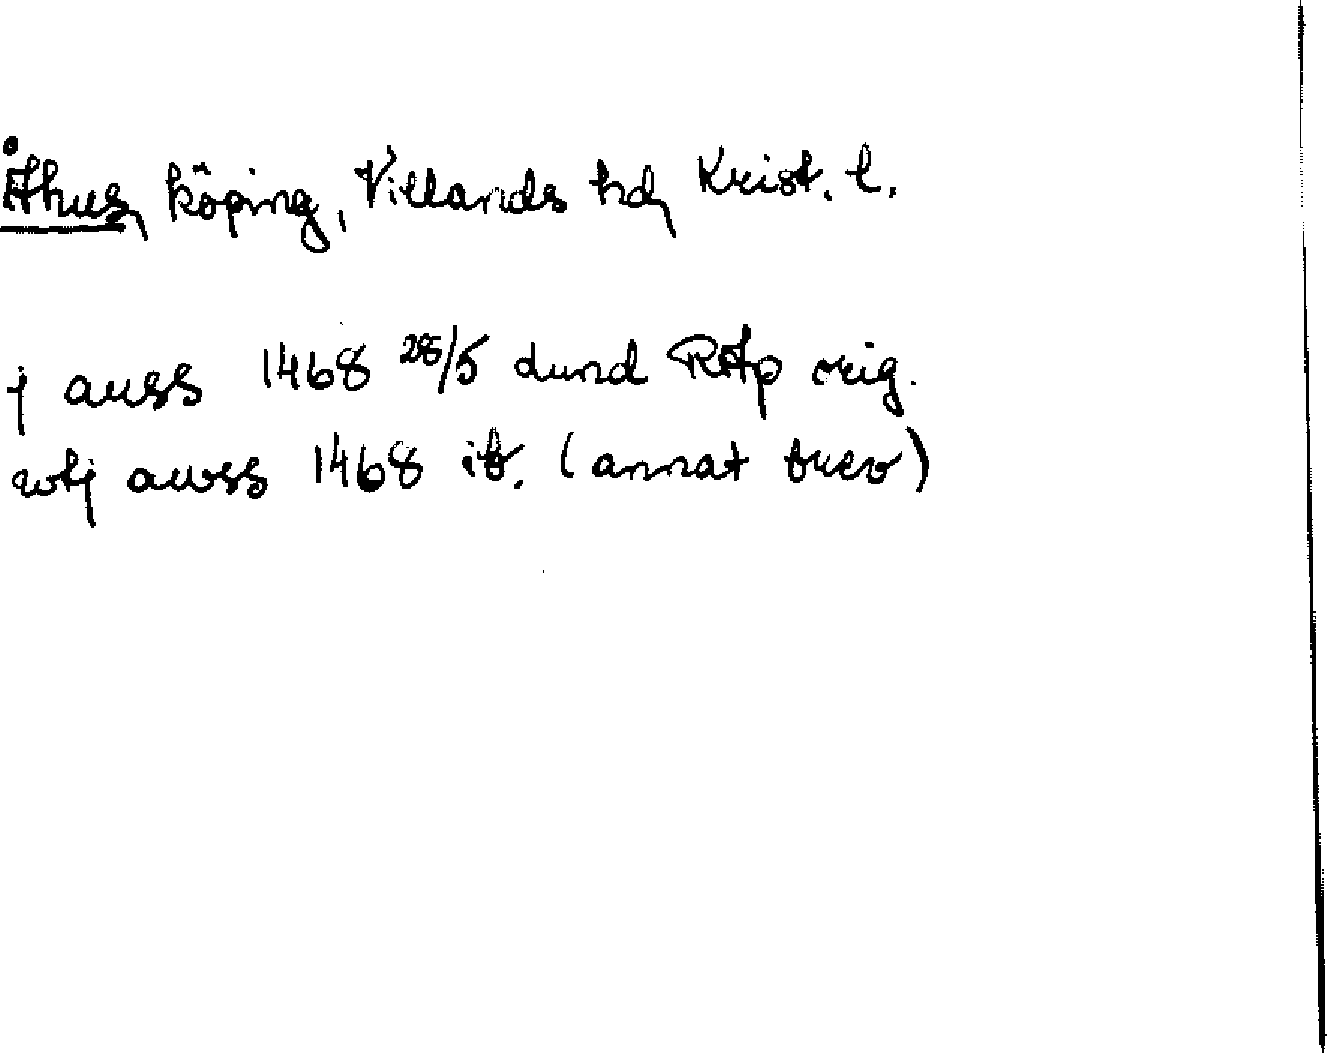 Åhus, köping, Villands hd, Krist. l.
j auss 1468 28/5 Lund RAp orig.
wtj awss 1468 ib. (annat brev)